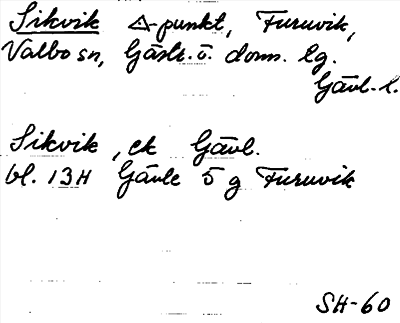 Sikvik △-punkt, Furuvik,
Valbo sn, Gästr. ö. doms. lg.
Gävl. l.
Sikvik, ek Gävl.
bl. 13H Gävle 5 g Furuvik
SH-60